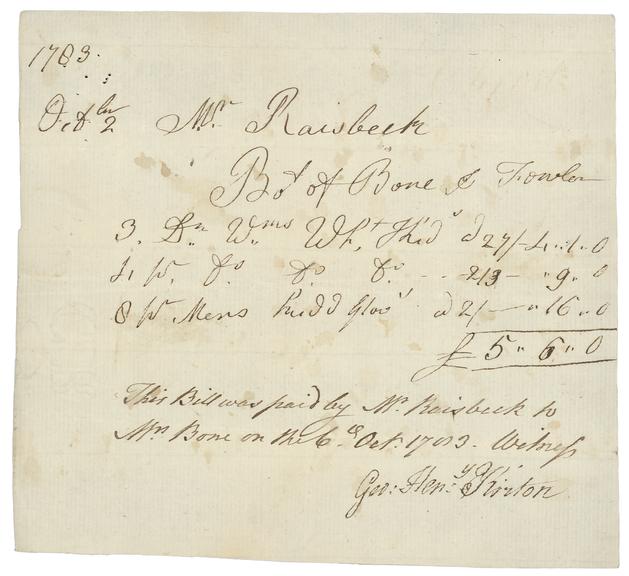 1783.
Octber 2 Mr Raisbeck
Bot of Bone & Fowler
3. Dn Wms Wht Kid's a 27/- 4 " 1 " 0
4 pr. Do Do Do - - 2/3 - " 9 " 0
8 pr Mens Kidd Glovs a 2/ - " 16 " 0
£ 5 " 6 " 0
This Bill was paid by Mr. Raisbeck to
Mrs Bone on the 6th Octr. 1783. Witness
Geo: Heny. Kirton